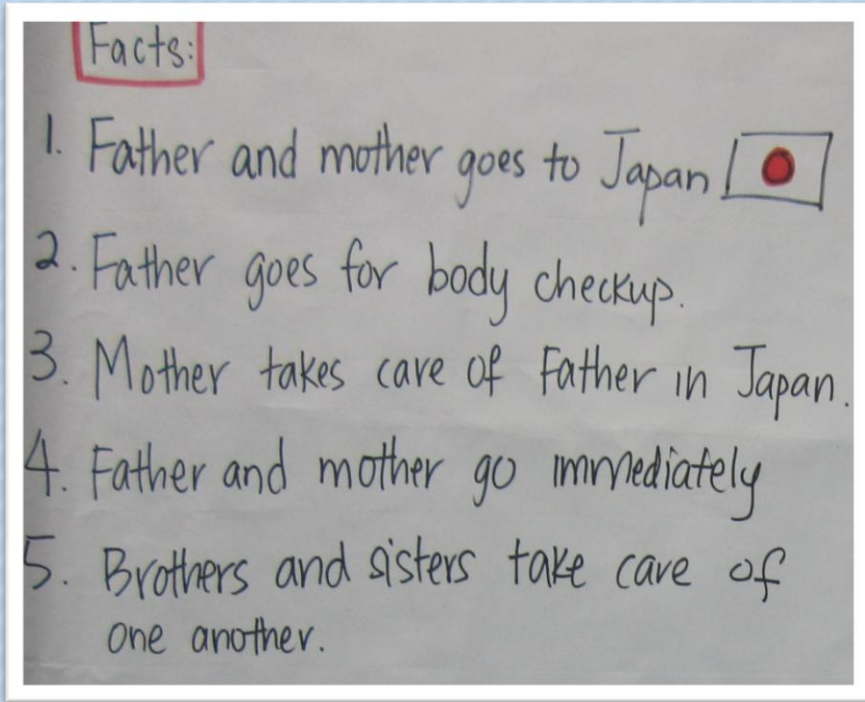 Facts:
1. Father and mother goes to Japan
2. Father goes for body checkup.
3. Mother takes care of Father in Japan.
4. Father and mother go immediately
5. Brothers and sisters take care of
one another.